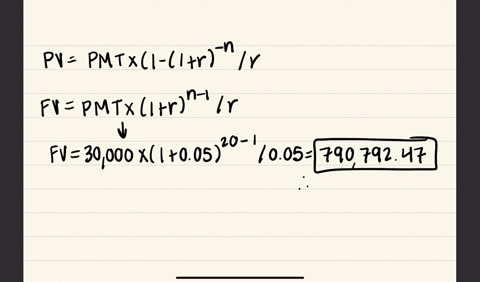 PV = PMT x (1-(1+r)^-n / r
FV = PMT x (1+r)^n-1 / r
↓
FV = 30,000 x (1+0.05)^20-1 / 0.05 = 790,792.47
∴